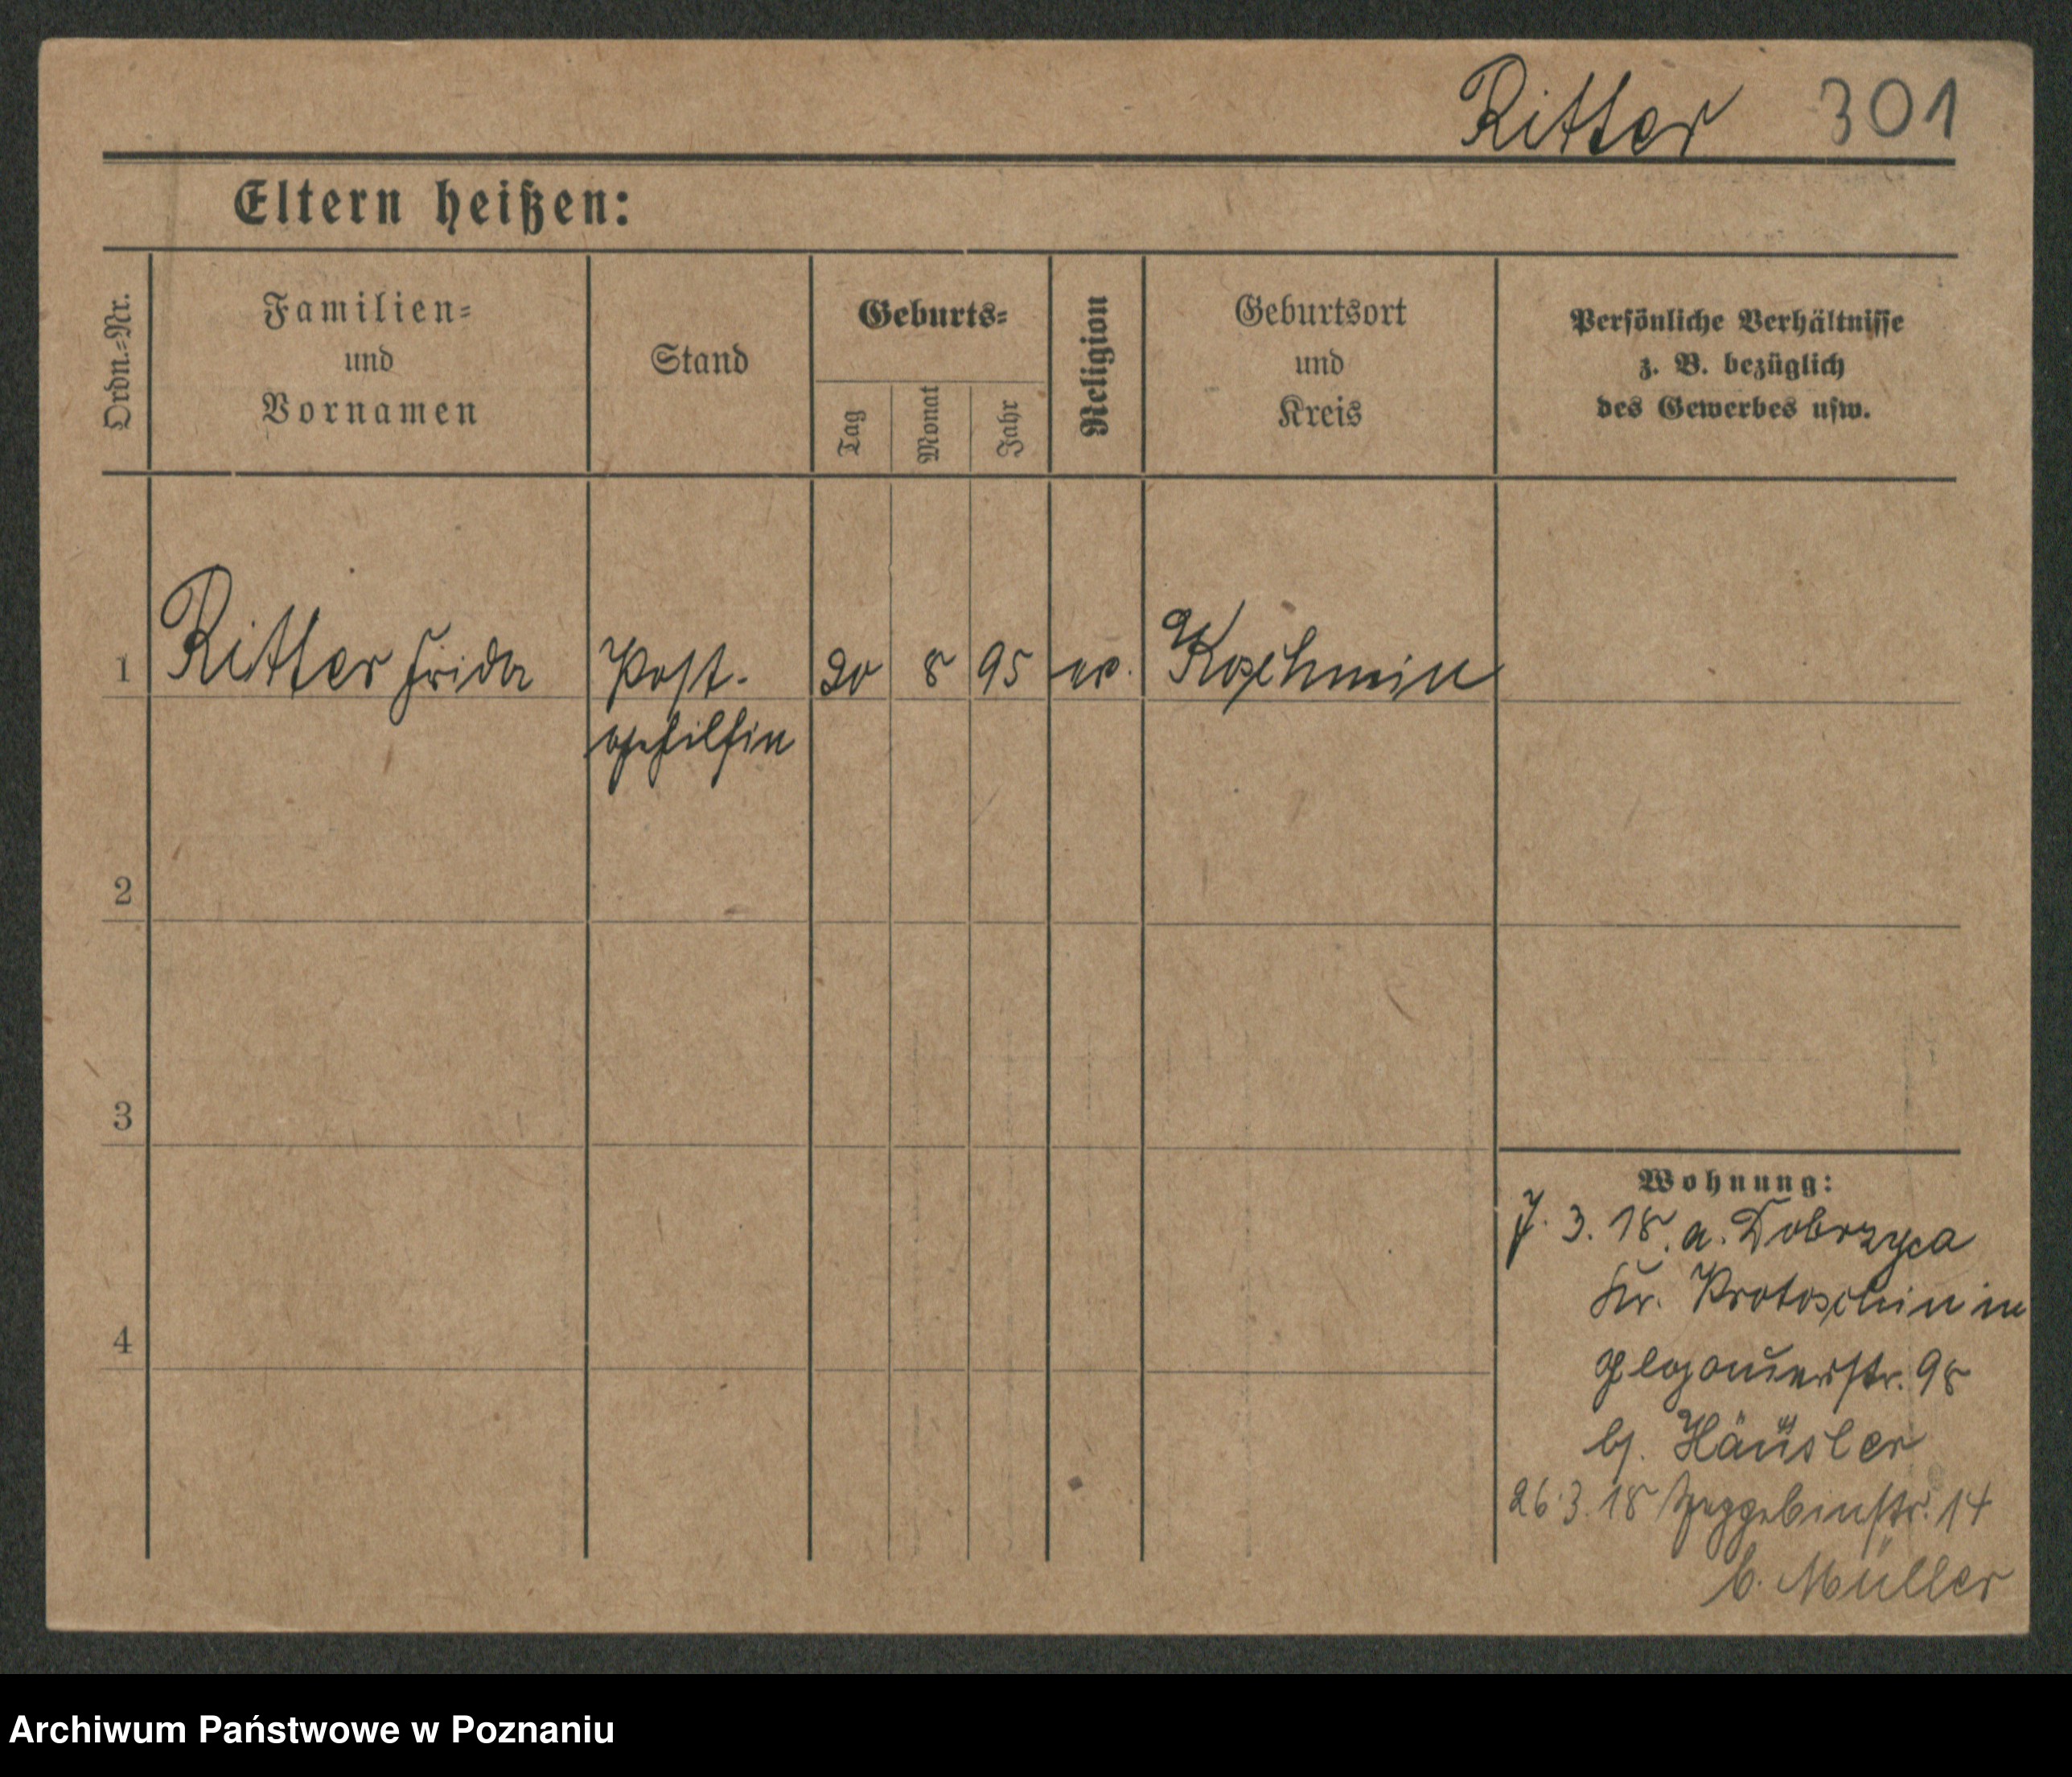 Ritter 301
Eltern heißen:
Ordn.-Nr.
Familien-
und
Vornamen
Stand
Geburts-
Tag
Monat
Jahr
Religion
Geburtsort
und
Kreis
Persönliche Verhältnisse
z. B. bezüglich
des Gewerbes usw.
1 Ritter Frida Post- 20 8 95 ev. Koschmin
gehilfin
2
3
4
Wohnung:
7. 3. 18. a. Dobrzyca
Kr. Krotoschin in
Glogauerstr. 98
bj. Häusler
26.3.18 14
b. Müller
Archiwum Państwowe w Poznaniu